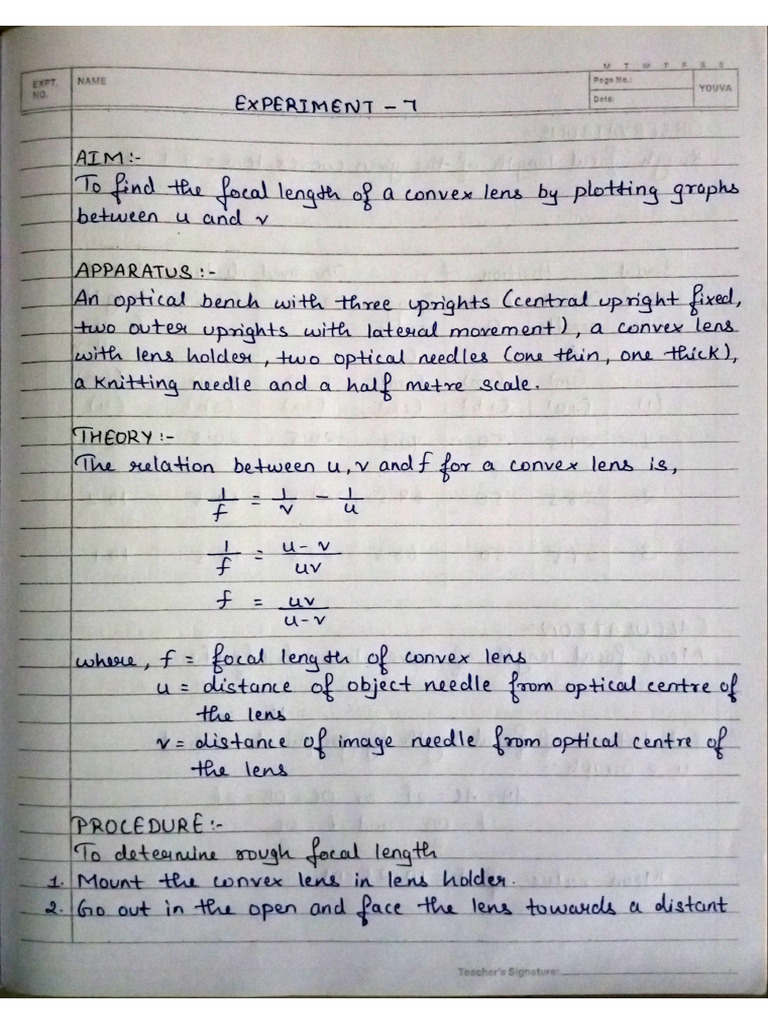 M T W T F S S
EXPT. NO. NAME Page No.: YOUVA
Date:
EXPERIMENT - 7
AIM:-
To find the focal length of a convex lens by plotting graphs
between u and v
APPARATUS :-
An optical bench with three uprights (central upright fixed,
two outer uprights with lateral movement), a convex lens
with lens holder, two optical needles (one thin, one thick),
a knitting needle and a half metre scale.
THEORY :-
The relation between u, v and f for a convex lens is,
1/f = 1/v - 1/u
1/f = u-v/uv
f = uv/u-v
where, f = focal length of convex lens
u = distance of object needle from optical centre of
the lens
v = distance of image needle from optical centre of
the lens
PROCEDURE :-
To determine rough focal length
1. Mount the convex lens in lens holder.
2. Go out in the open and face the lens towards a distant
Teacher's Signature: